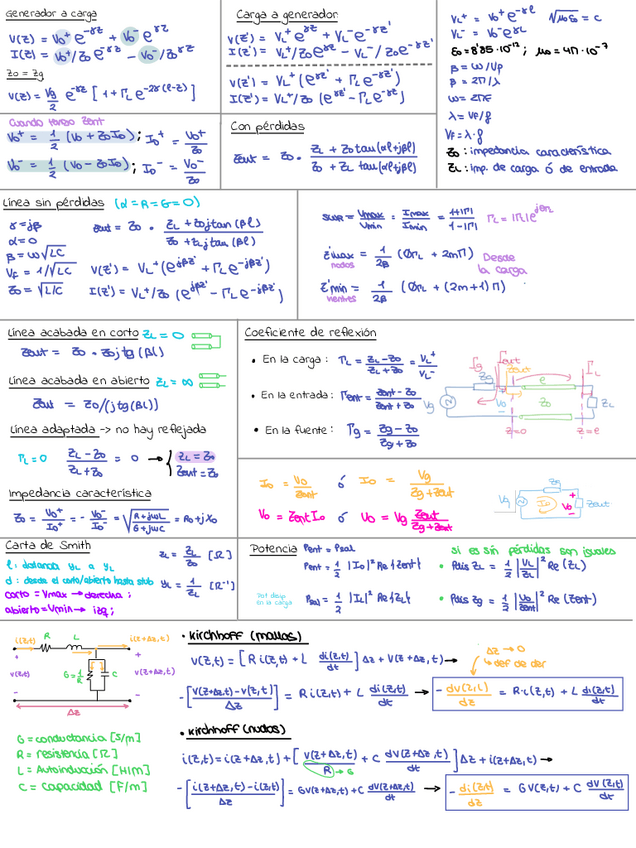 Generador a carga
V(z) = V0⁺ e^-γz + V0⁻ e^γz
I(z) = V0⁺/Z0 e^-γz - V0⁻/Z0 e^γz
Z0 = Zg
V(z) = Vg/2 e^-γz [1 + ΓL e^-2γ(ℓ-z)]
Cuando tengo Zent
V0⁺ = 1/2 (V0 + Z0I0) ; I0⁺ = V0⁺/Z0
V0⁻ = 1/2 (V0 - Z0I0) ; I0⁻ = V0⁻/Z0
Carga a generador
V(z') = VL⁺ e^γz' + VL⁻ e^-γz'
I(z') = VL⁺/Z0 e^γz' - VL⁻/Z0 e^-γz'
V(z') = VL⁺ (e^γz' + ΓL e^-γz')
I(z') = VL⁺/Z0 (e^γz' - ΓL e^-γz')
Con pérdidas
Zent = Z0 · (ZL + Z0 tan(αℓ+jβℓ))/(Z0 + ZL tan(αℓ+jβℓ))
VL⁺ = V0⁺ e^-γℓ
VL⁻ = V0⁻ e^γℓ
ε0 = 8'85·10^-12 ; μ0 = 4π·10^-7
β = ω/Vp
β = 2π/λ
ω = 2πf
λ = VF/f
VF = λ·f
Z0 : impedancia característica
ZL : imp. de carga ó de entrada
Línea sin pérdidas (α = R = G = 0)
γ = jβ
α = 0
β = ω√LC
VF = 1/√LC
Z0 = √L/C
Zout = Z0 · (ZL + Z0 j tan(βℓ))/(Z0 + ZL j tan(βℓ))
V(z') = VL⁺ (e^jβz' + ΓL e^-jβz')
I(z') = VL⁺/Z0 (e^jβz' - ΓL e^-jβz')
SWR = Vmax/Vmin = Imax/Imin = (1+|Γ|)/(1-|Γ|) ΓL = |ΓL| e^jθΓL
z'max = 1/2β (θΓL + 2mπ)
nodos
z'min = 1/2β (θΓL + (2m+1)π)
vientres
Desde
la carga
Línea acabada en corto ZL = 0
Zout = Z0 · Z0 j tg(βℓ)
Línea acabada en abierto ZL = ∞
Zout = Z0/(j tg(βℓ))
Línea adaptada -> no hay reflejada
ΓL = 0 (ZL - Z0)/(ZL + Z0) = 0 → { ZL = Z0
Zout = Z0
Impedancia característica
Z0 = V0⁺/I0⁺ = - V0⁻/I0⁻ = √(R+jωL)/(G+jωC) = R0 + jX0
Coeficiente de reflexión
• En la carga : ΓL = (ZL - Z0)/(ZL + Z0) = VL⁺/VL⁻
• En la entrada : Γent = (Zent - Z0)/(Zent + Z0)
• En la fuente : Γg = (Zg - Z0)/(Zg + Z0)
Γg Γout ΓL
Zg Zout ℓ
Vg V0 Z0 ZL
z=0 z=ℓ
I0 = V0/Zent ó I0 = Vg/(Zg + Zent)
V0 = Zent I0 ó V0 = Vg Zent/(Zg + Zent)
Zg
Vg I0 + V0 - Zout
Carta de Smith
ℓ : distancia yL a y1
d : desde el corto/abierto hasta stub
corto = Vmax → derecha ;
abierto = Vmin → izq ;
zL = ZL/Z0 [Ω]
yL = 1/zL [Ω⁻¹]
Potencia Pent = Psal
Pent = 1/2 |I0|² Re{Zent}
Psal = 1/2 |IL|² Re{ZL}
en la carga
si es sin pérdidas son iguales
• Pdis ZL = 1/2 |VL/ZL|² Re(ZL)
• Pdis Zg = 1/2 |V0/Z0|² Re(Zent)
i(z,t) R L i(z+Δz,t)
+ +
v(z,t) G=1/R C v(z+Δz,t)
- -
Δz
G = conductancia [S/m]
R = resistencia [Ω]
L = Autoinducción [H/m]
C = Capacidad [F/m]
• Kirchhoff (mallas)
v(z,t) = [R i(z,t) + L di(z,t)/dt] Δz + v(z+Δz,t) →
Δz → 0
↳ def de der
-[(v(z+Δz,t) - v(z,t))/Δz] = R i(z,t) + L di(z,t)/dt → - dv(z,t)/dz = R·i(z,t) + L di(z,t)/dt
• Kirchhoff (nudos)
i(z,t) = i(z+Δz,t) + [v(z+Δz,t)/R → G + C dv(z+Δz,t)/dt] Δz + i(z+Δz,t) →
-[(i(z+Δz,t) - i(z,t))/Δz] = G v(z+Δz,t) + C dv(z+Δz,t)/dt → - di(z,t)/dz = G v(z,t) + C dv(z,t)/dt